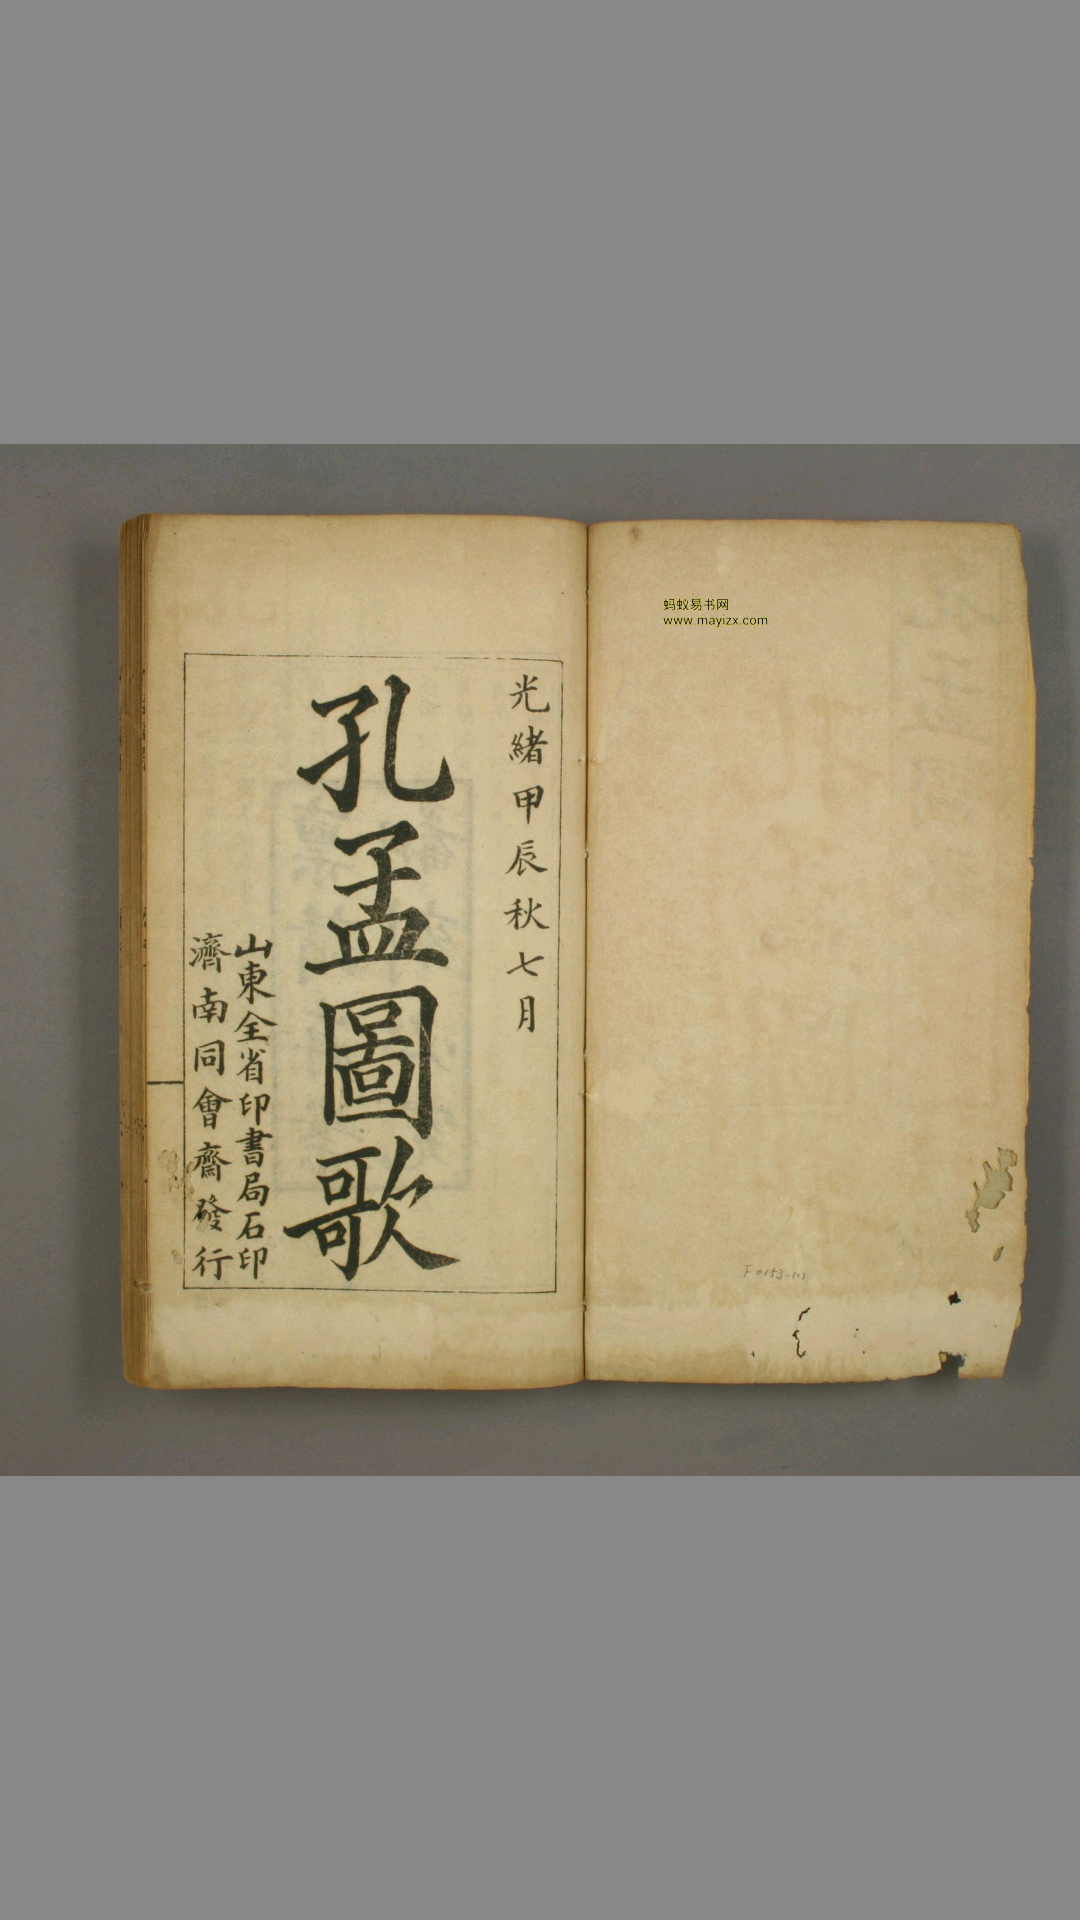 光緒甲辰秋七月
孔孟圖歌
山東全省印書局石印
濟南同會齋發行
蚂蚁易书网
www.mayizx.com